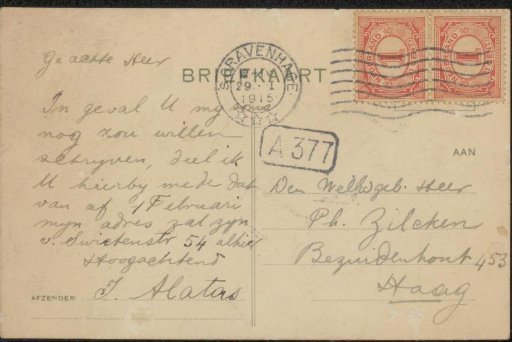 Geachte Heer
BRIEFKAART
'S GRAVENHAGE
29. I
1915
NEDERLAND
1
NEDERLAND
1
A 377
In geval U my
nog zou willen
schryven, deel ik
U hierby mede dat
van af 1 Februari
myn adres zal zyn
v. Swietenstr 54 alhier
Hoogachtend
AFZENDER:
J. Alatas
AAN
Den WelEdgeb. Heer
Ph. Zilcken
Bezuidenhout 453
Haag